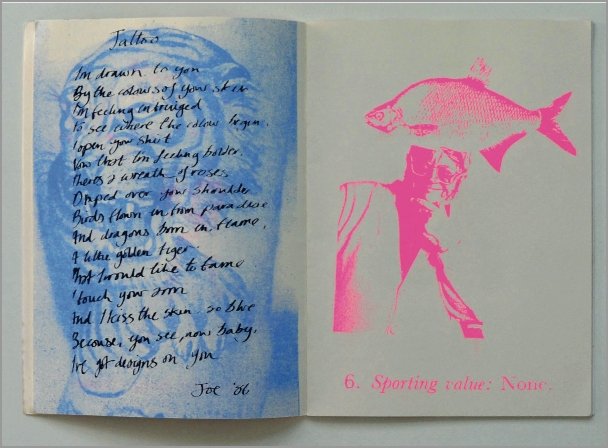 Tattoo
I'm drawn to you
By the colours of your skin
I'm feeling intrigued
To see where the colour begin.
I open your shirt
Now that I'm feeling bolder.
Theres a wreath of roses
Draped over your shoulder
Birds flown in from paradise
And dragons born in flame,
A little golden tiger.
That I would like to tame
I touch your arm
And I kiss the skin so blue
Because, you see, now baby,
I've got designs on you
Joe '06
6. Sporting value: None.